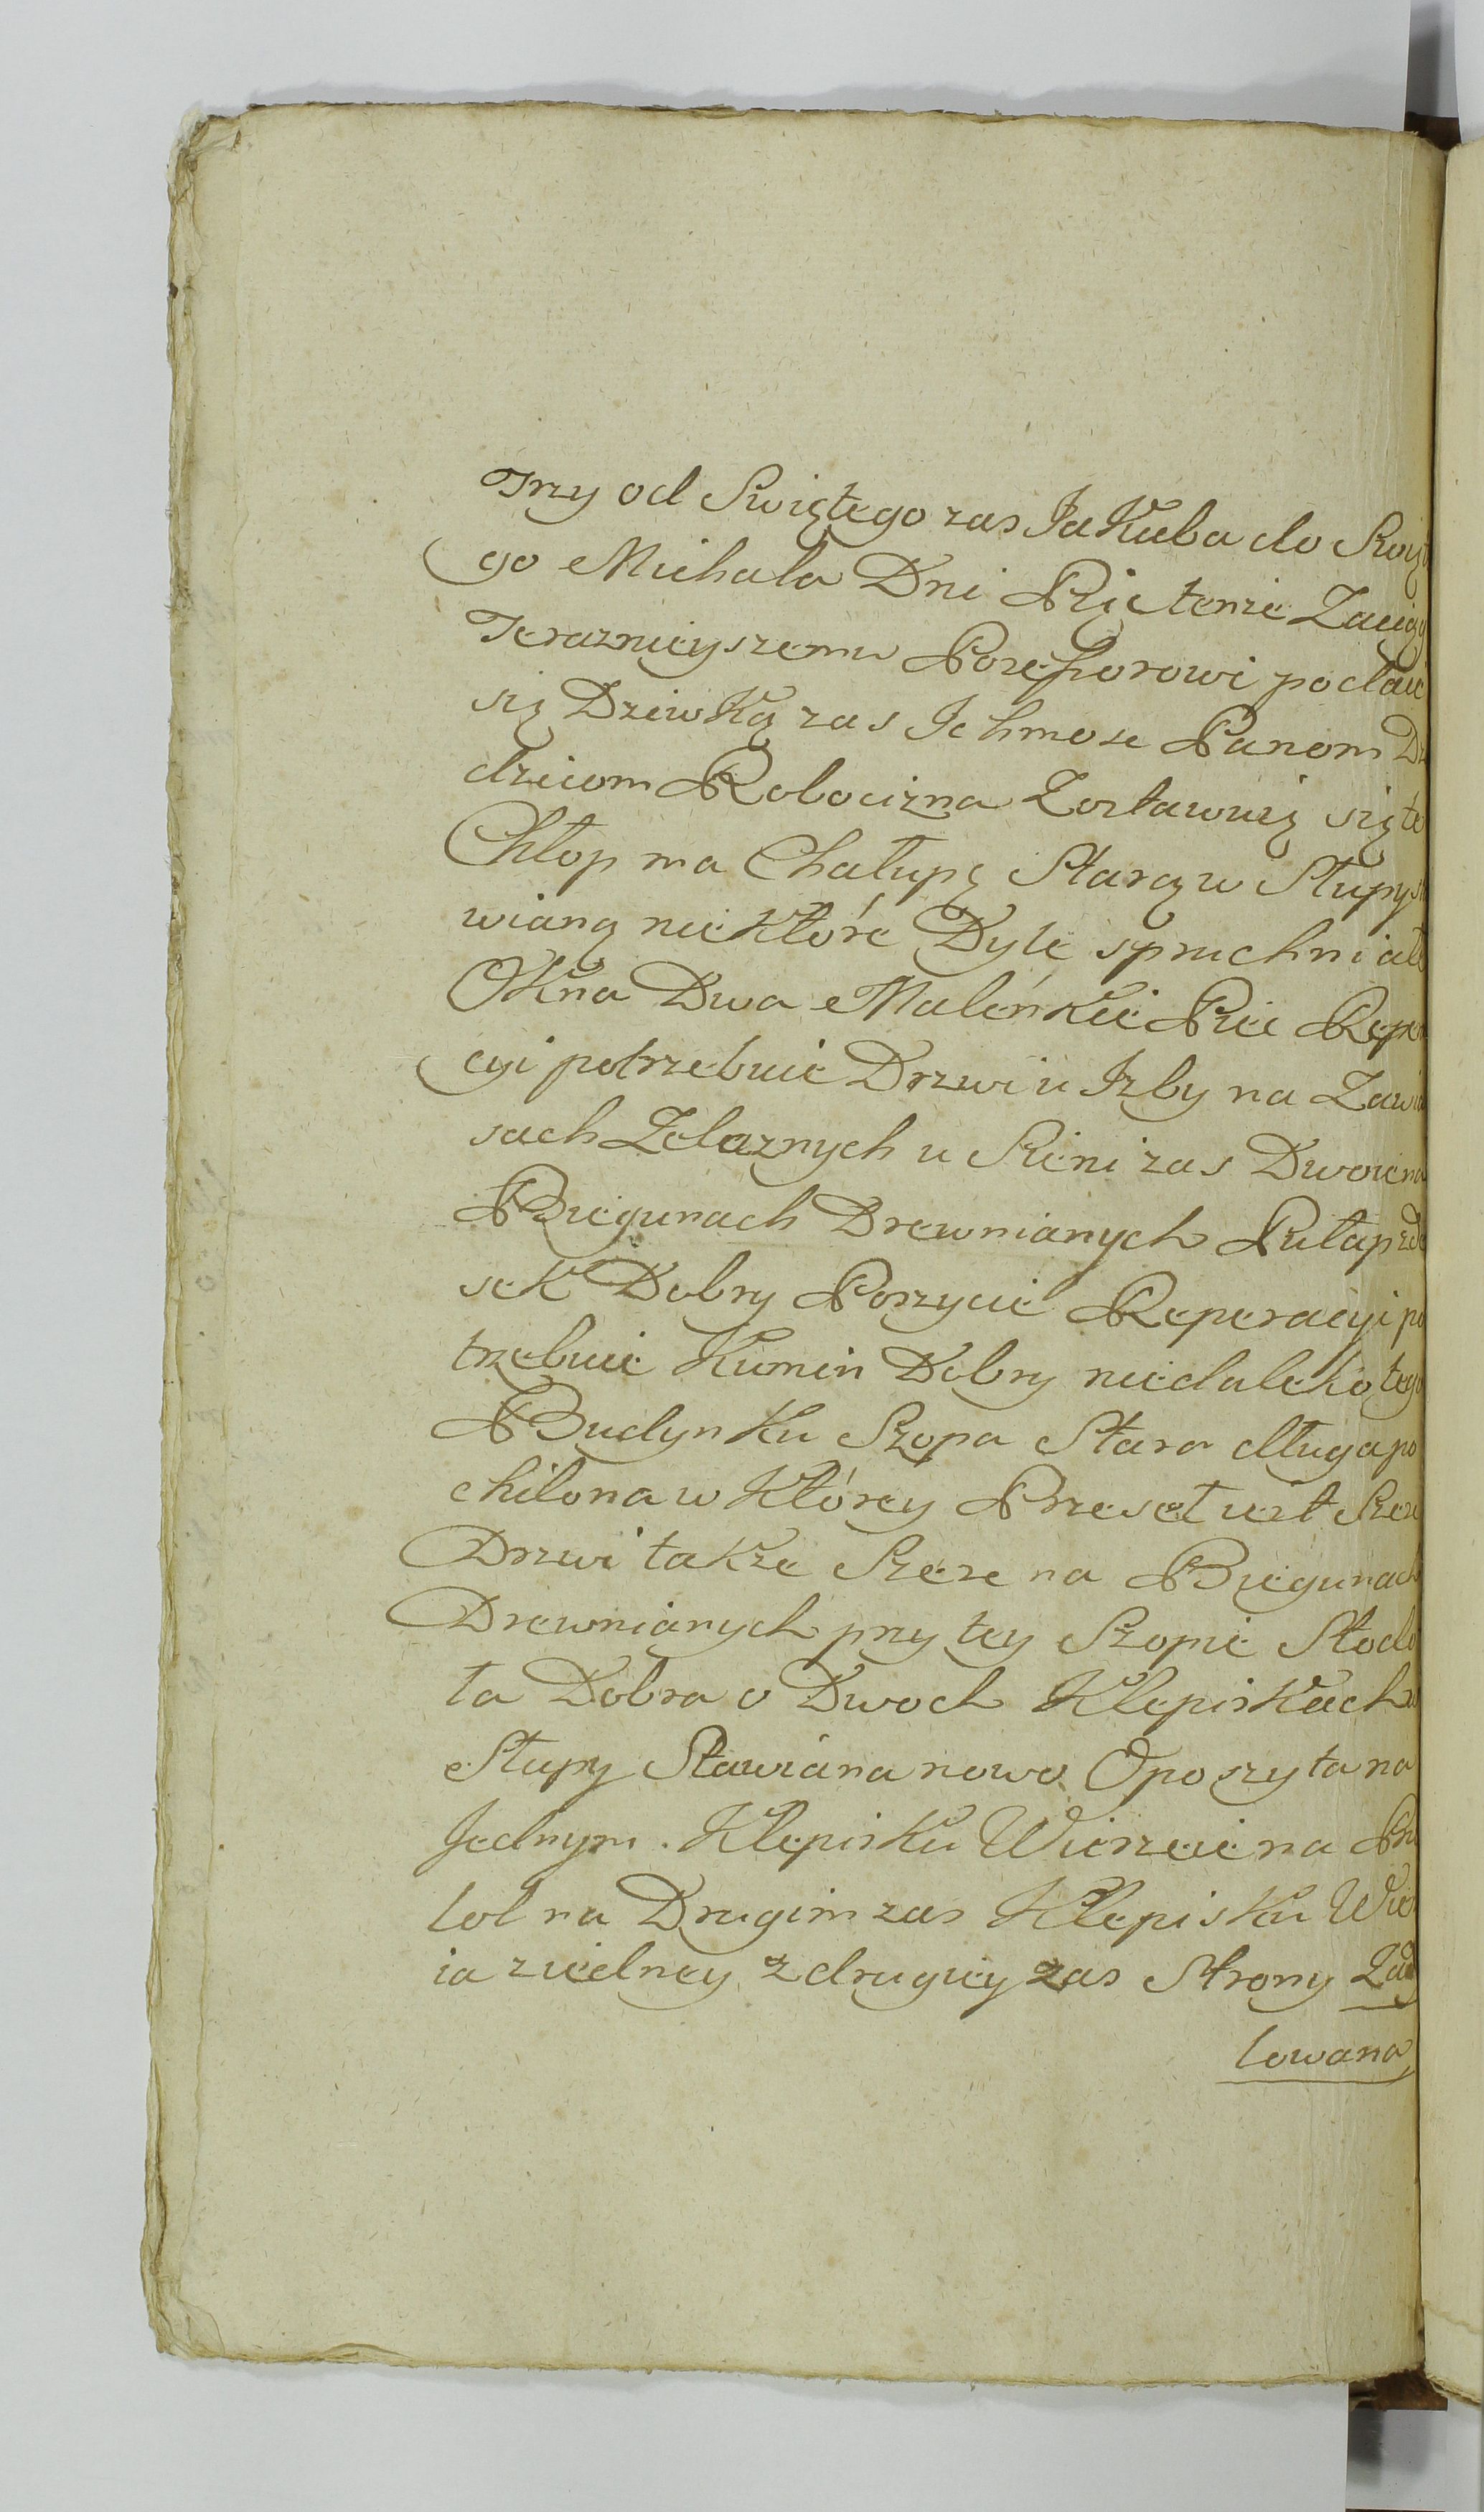 Trzy od Swiętego zas JaKuba do Swię
go Michała Dni Pięć tenże Zaciąg
Teraznieyszemu Possessorowi podaie
się DziewKą zas Ichmosc Panom Dz
dzicom Robocizna Zostawuię się te
Chłop ma Chałupę Starą w Słupy st
wianą nieKtóre Dyle spruchniałe
OKna Dwa MaleńKie Piec Repera
cyi potrzebuie Drzwi u Izby na Zawia
sach Zelaznych u Sieni zas Dwoie na
Biegunach Drewnianych Pułap z De
seK Dobry Poszycie Reperacyi po
trzebuie Kumin Dobry niedaleKo tego
BudynKu Szopa Stara długa po
chilona w Którey Przesęt iest Szes
Drzwi taKże Szesc na Biegunach
Drewnianych przy tey Szopie Stodo
ła Dobra o Dwoch KlepisKach w
Słupy Stawiana nowo Oposzyta na
Jednym KlepisKu Wierzeie na Prze
lot na Drugim zas KlepisKu Wierze
ia z iedney z drugiey zas Strony Zady
lowana